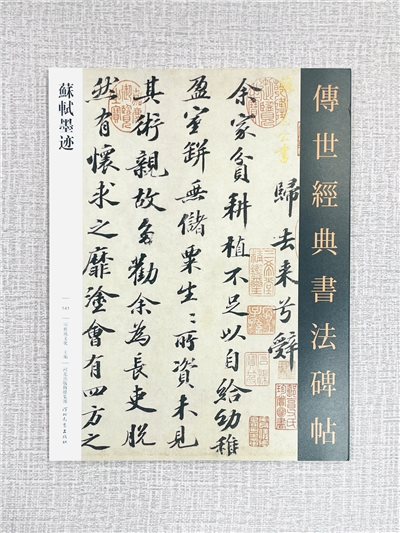 傳世經典書法碑帖
歸去来兮辭
余家貧耕植不足以自給幼稚
盈室缾無儲粟生生所資未見
其術親故多勸余為長吏脱
然有懷求之靡塗會有四方之
蘇軾墨迹